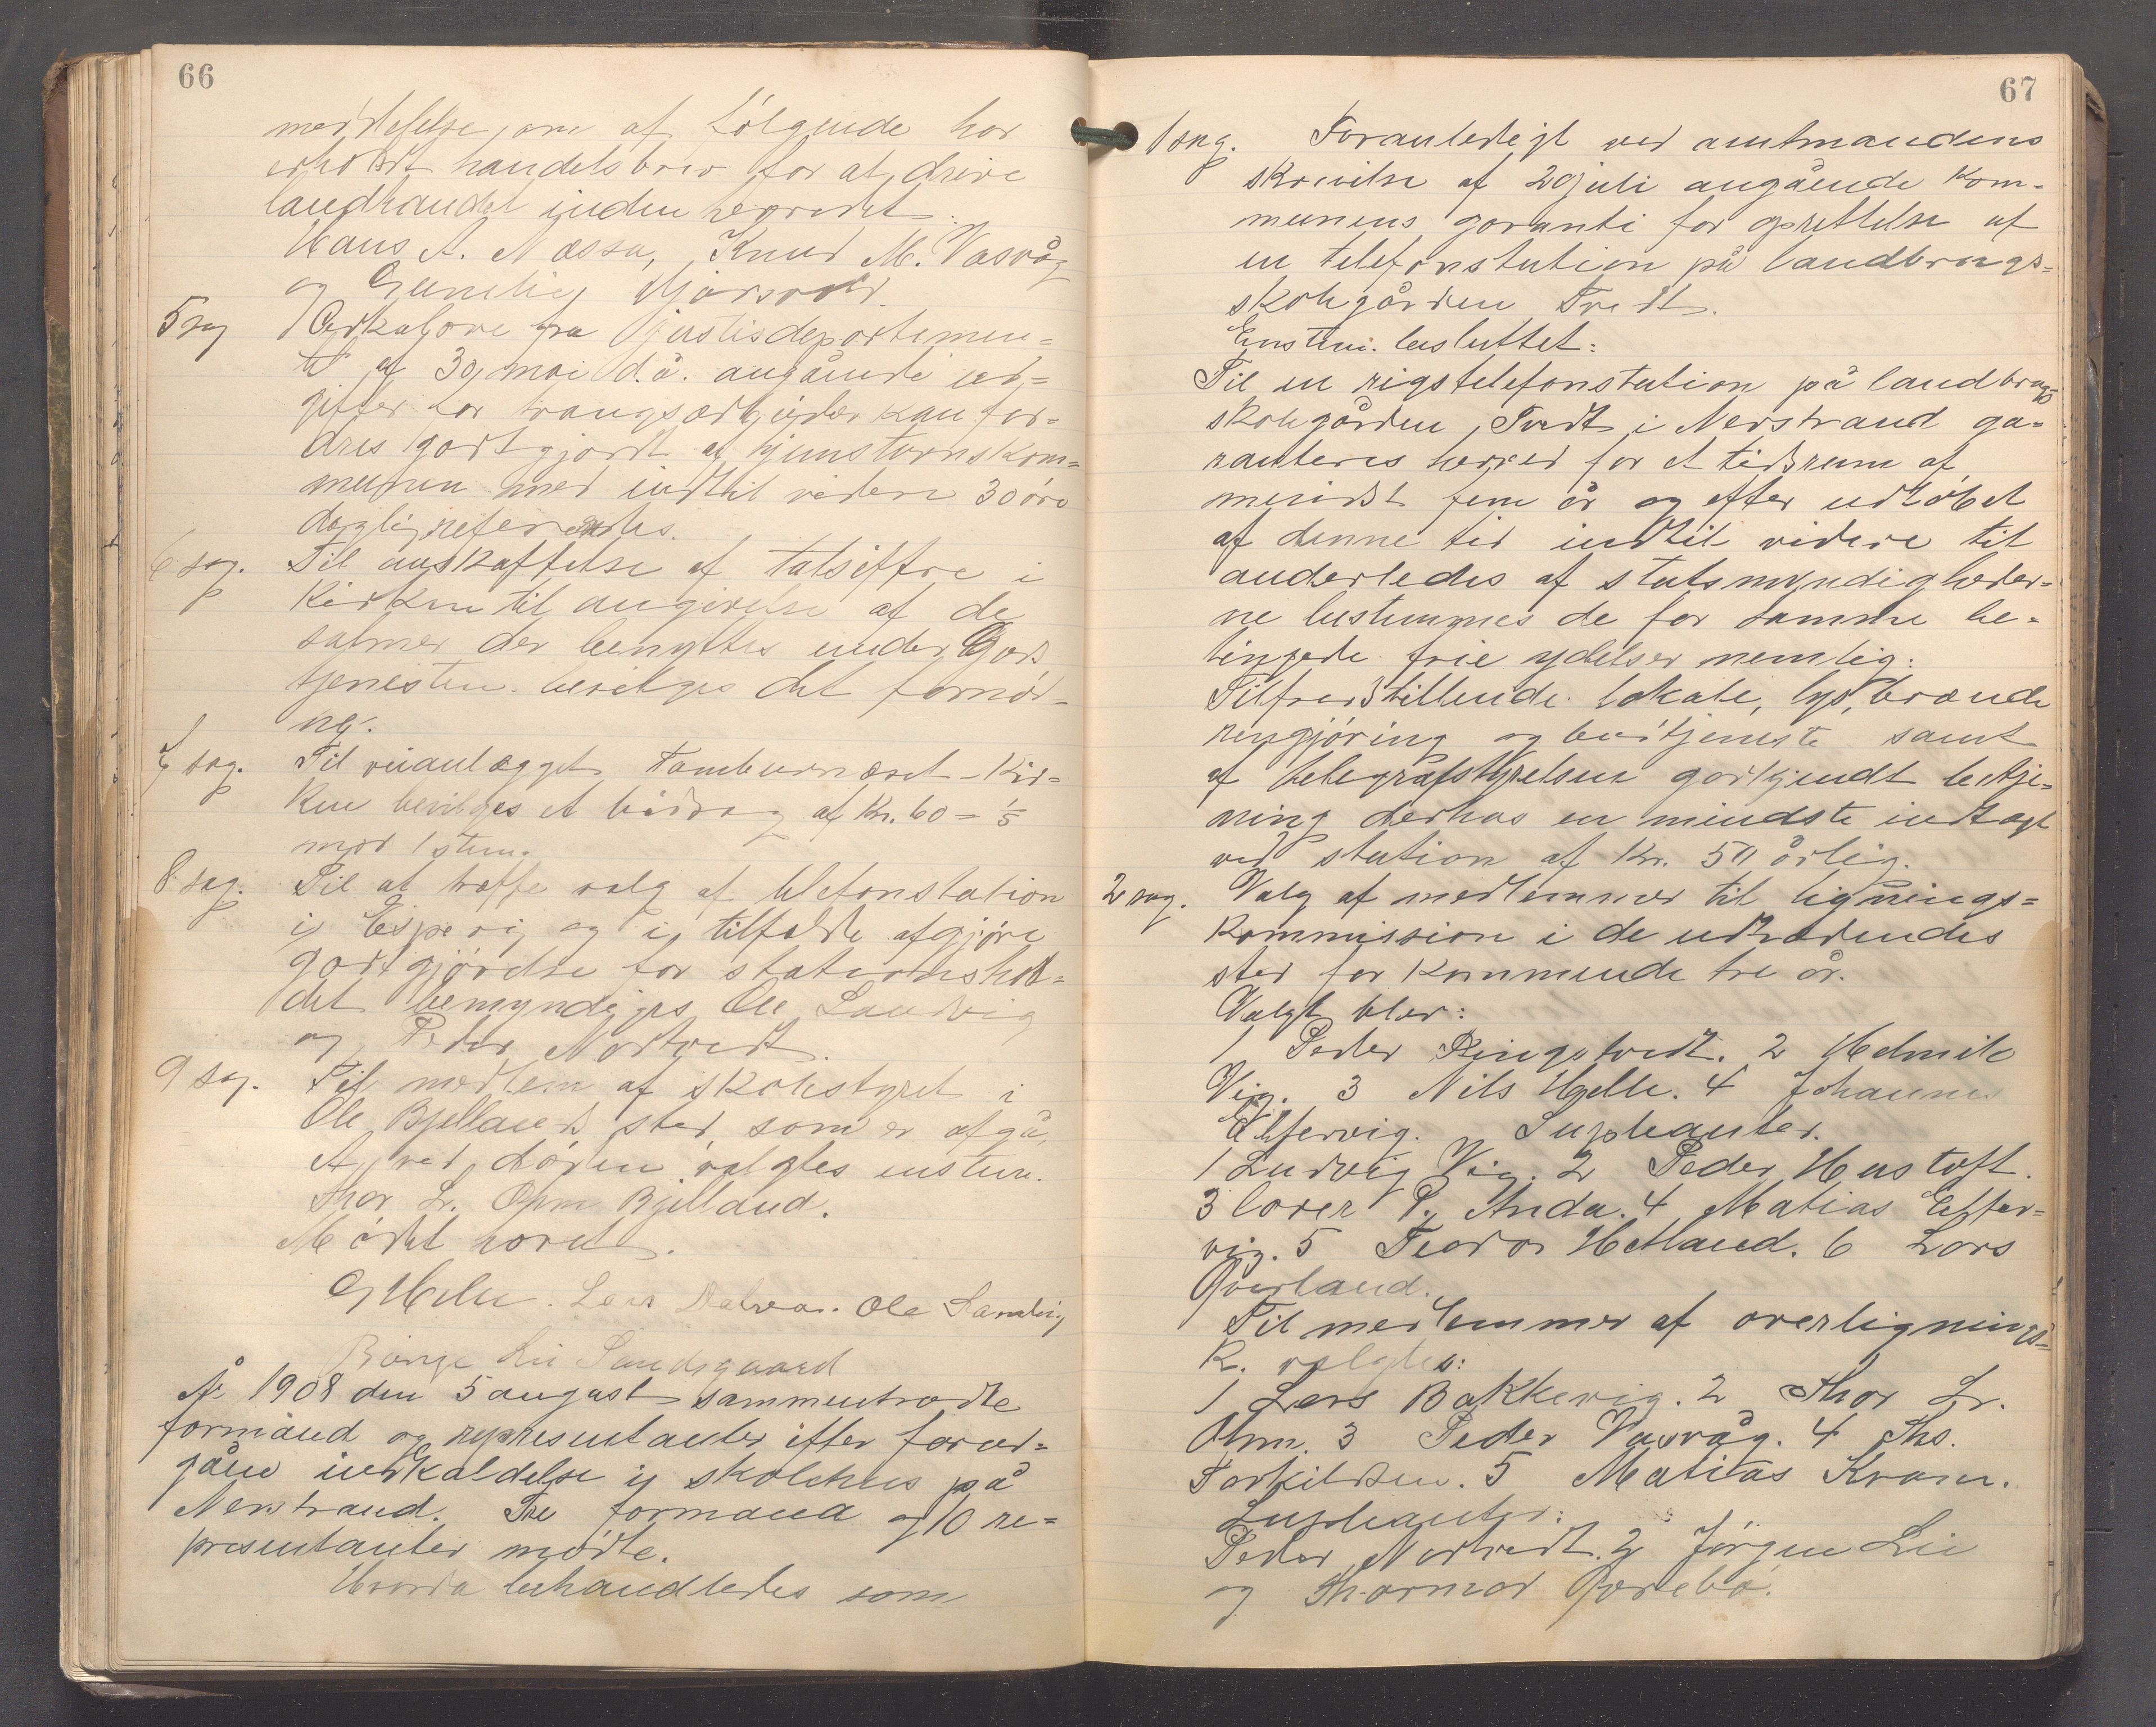 66
meddelelse om at følgende har
erholdt handelsbrev for at drive
landhandel inden heredet.
Hans A. Næssa, Knud M. Vasvåg
og
5 sag Cirkulære fra justisdepartemen=
tet af 30 mai d.å. angående ud=
gifter for tvangsarbeider kan for=
dres godtgjort af hjemstavnskom=
munen med indtil videre 30 øre
daglig refereredes.
6 sag. Til anskaffelse af talsiffre i
Kirken til angivelse af de
salmer der benyttes under Guds
tjenesten bevilges det fornød=
ne.
7 sag. Til veianlægget - Kir=
ken bevilges et bidrag af Kr. 60 = 1/5
mod 1 stem.
8 sag. Til at træffe valg af telefonstation
i Espevig og i tilfælde afgjøre
godtgjørelse for stationshol=
det bemyndiges Ole Sandvig
og Peder Nortvedt.
9 sag. Til medlem af skolestyret i
Ole Bjellands sted, som er afgå=
et ved døden valgtes enstem.
Thor Lr. Ohm Bjelland.
Mødet hævet.
G Helle. Lars Ole Sandvig
Lie Sandsgaard
År 1908 den 5 august sammentrådte
formænd og representanter efter forud=
gåen indkaldelse i skolehus på
Nerstrand. Tre formænd og 10 re=
presentanter mødte.
Hvorda behandledes som
67
1 sag. Foranlediget ved amtmandens
skrivelse af 20 juli angående kom=
munens garanti for oprettelse af
en telefonstation på landbrugs=
skolegården Tvedt.
Enstem. besluttet:
Til en rigstelefonstation på landbrugs
skolegården Tvedt i Nerstrand ga=
ranteres herved for et tidsrum af
mindst fem år og efter udløbet
af denne tid indtil videre til
anderledes af statsmyndigheder=
ne bestemmes de for samme be=
tingede frie ydelser nemlig:
Tilfredstillende lokale, lys, brænde
rengjøring og budtjeneste samt
af telegrafstyrelsen godkjendt betje=
ning derhos en mindste indtægt
ved station af Kr. 50 årlig.
2 sag. Valg af medlemmer til lignings=
kommission i de udtrædendes
sted for kommende tre år.
Valgt blev:
1 Peder Ringstvedt. 2 Helmik
Vig. 3 Nils Helle. 4 Johannes
Eltervig. Supleanter.
1 Ludvig Vig. 2 Peder Hustoft.
3 Sover P. Anda. 4 Matias Elter=
vig. 5 Teodor Hetland. 6 Lars
Øverland.
Til medlemmer af overlignings=
K. valgtes:
1 Lars Bakkevig. 2 Thor Lr.
Ohm. 3 Peder Vasvåg. 4 Ths.
Torkildsen. 5 Matias Kvam.
Supleanter:
Peder Nortvedt. 2 Jørgen Lie
og Thormod Øvrebø.